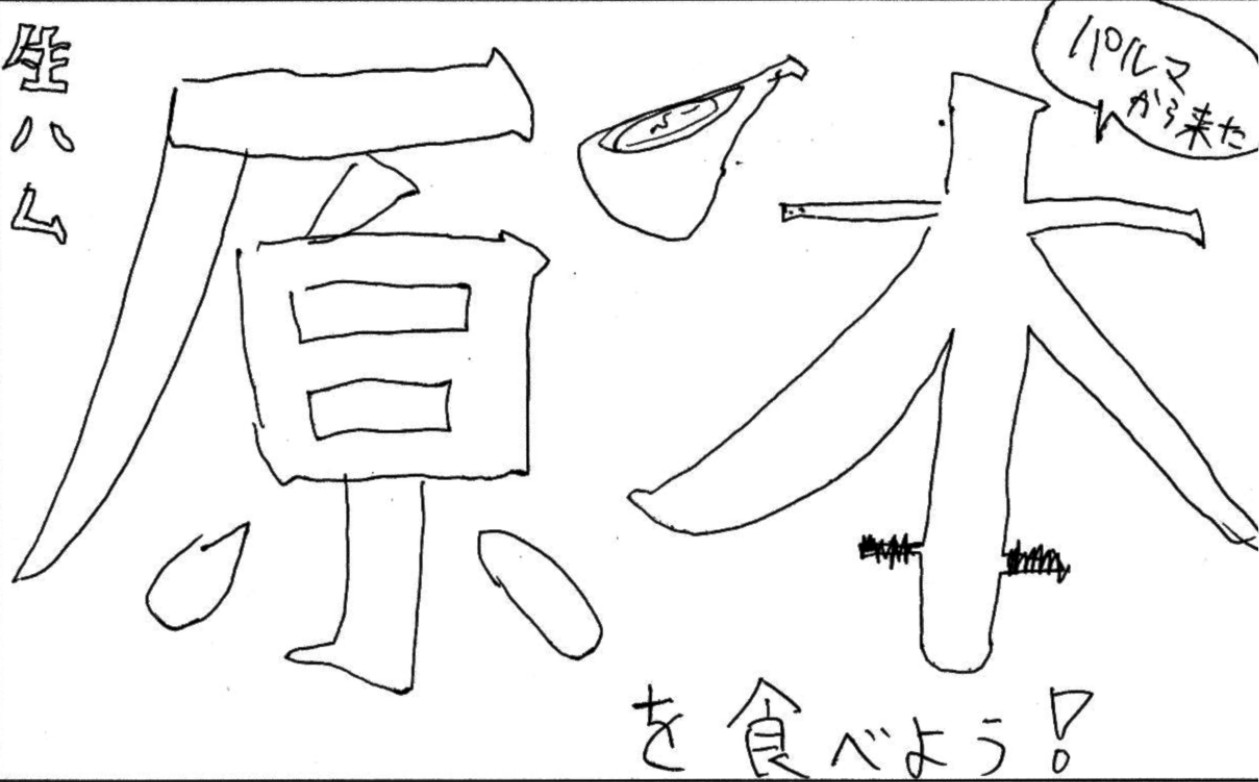 生ハム
原木
パルマ
から来た
を食べよう!